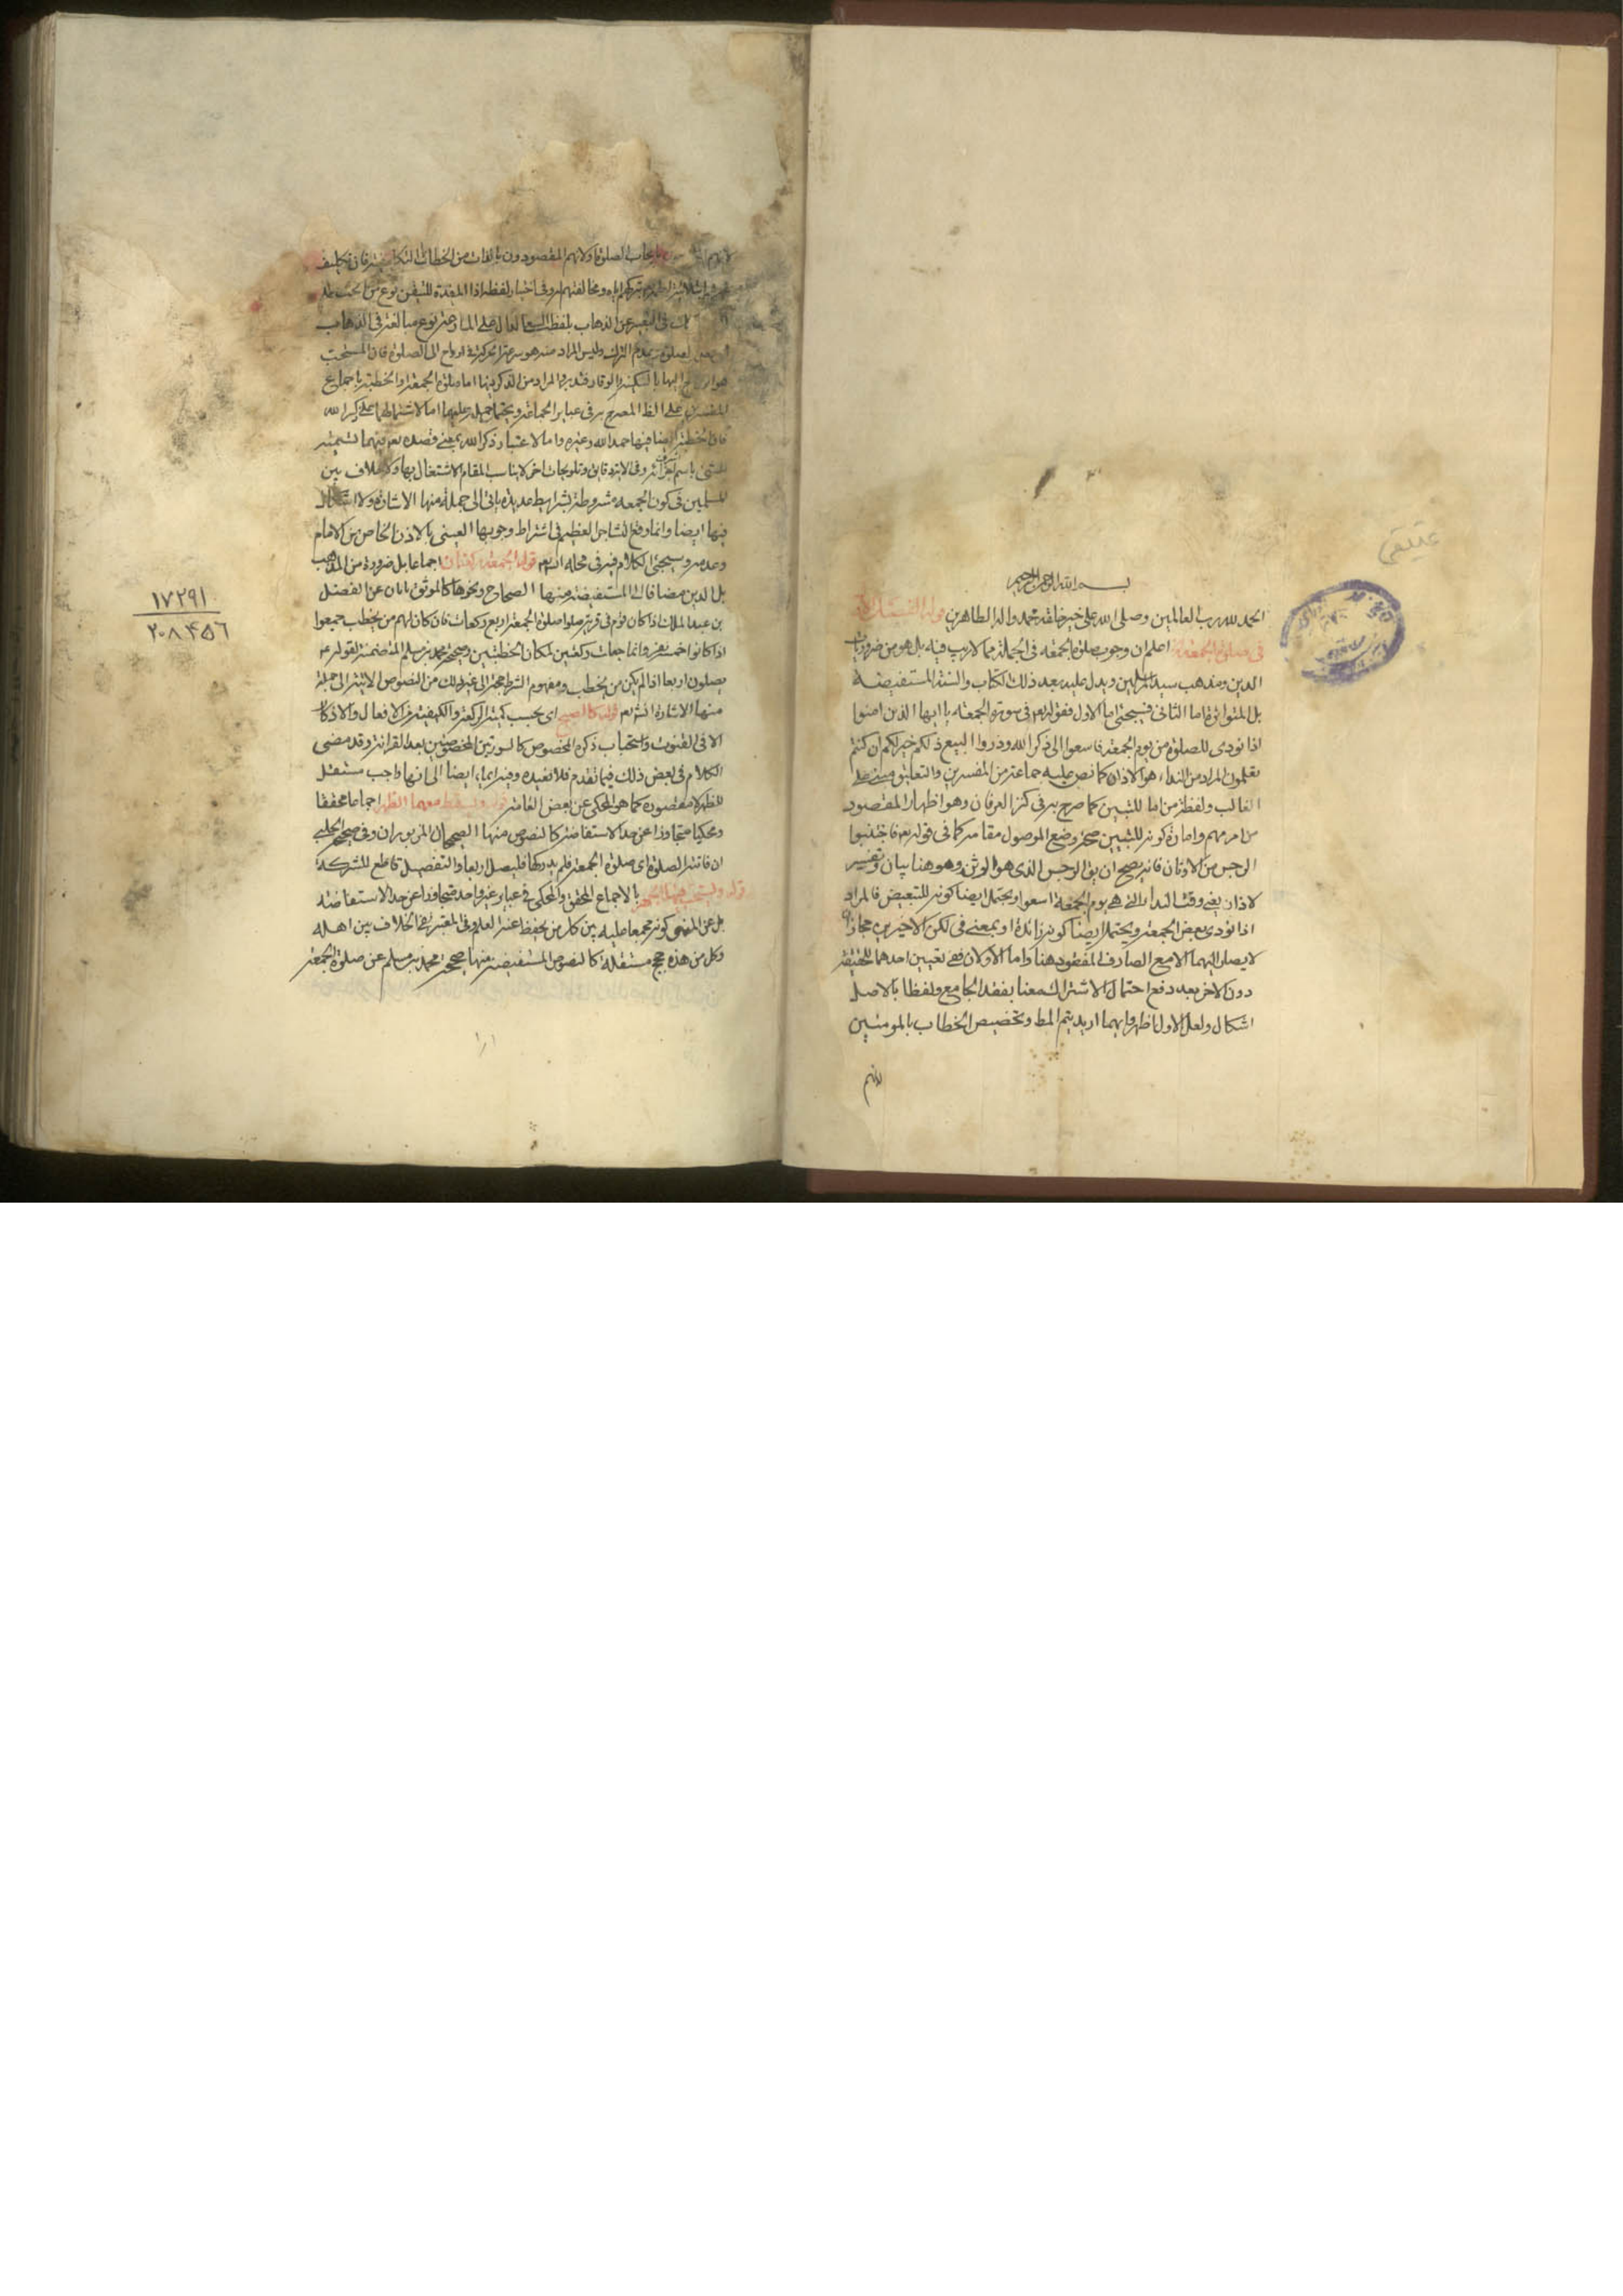 بسم الله الرحمن الرحيم
الحمد لله رب العالمين وصلى الله على خير خلقه محمد واله الطاهرين قوله
فى صلوة الجمعة اعلم ان وجوب صلوة الجمعه فى الجملة مما لا ريب فيه بل هو من ضروريات
الدين ومذهب سيد المرسلين ويدل عليه بعد ذلك الكتاب والسنة المستفيضة
بل المتواترة اما الثانى فسيجئ اما الاول فقوله تعم فى سورة الجمعه يا ايها الذين امنوا
اذا نودى للصلوة من يوم الجمعة فاسعوا الى ذكر الله وذروا البيع ذلكم خير لكم ان كنتم
تعلمون المراد من النداء هو الاذان كما نص عليه جماعة من المفسرين والتعليق مبنى على
الغالب ولفظة من اما للتبيين كما صرح به فى كنز العرفان وهو اظهار المقصود
من امر مبهم وامارة كونه للتبيين صحة وضع الموصول مقامه كما فى قوله تعم فاجتنبوا
الرجس من الاوثان فانه يصح ان يق الرجس الذى هو الوثن وهو هنا بيان وتفسير
لاذا يعنى وقت النداء التى هى يوم الجمعة اسعوا ويحتمل ايضا كونه للتبعيض فالمراد
اذا نودى بعض الجمعة ويحتمل ايضا كونه زائدة او بمعنى فى لكن الاخيرين مجاز
لا يصار اليهما الا مع الصارف المفقود هنا واما الاولان ففى تعيين احدهما للحقيقة
دون الاخر بعد دفع احتمال الاشتراك معنا بفقد الجامع ولفظا بالاصل
اشكال ولعل الاول اظهر وايهما اريد يتم المط وتخصيص الخطاب بالمومنين
لانهم
عتيقى
بايجاب الصلوة ولانهم المقصودون بالذات من الخطابات التكليفية فان تكليف
وفى اختيار لفظة اذا المفيدة للتيقن نوع من الحث على
فى التعبير عن الذهاب بلفظ السعى الدال على المسارعة نوع مبالغة فى الذهاب
وليس المراد منه هو سرعة الحركة فى الرواح الى الصلوة فان المستحب
اليها بالسكينة والوقار فتدبر والمراد من الذكر هنا اما صلوة الجمعة او الخطبة باجماع
المفسرين على الظ المصرح به فى عباير الجماعة ويحتمل حمله عليهما اما لاشتمالهما على ذكر الله
فان الخطبة ايضا فيها حمد الله وغيره واما لاعتبار ذكر الله بمعنى قصده بعد فيهما تسمية
للشئ باسم وفى الاية دقايق وتلويحات اخر لا يناسب المقام الاشتغال بها ولا خلاف بين
المسلمين فى كون الجمعه مشروطة بشرايط عديدة ياتى الى جملة منها الاشارة ولا اشكال
فيها ايضا وانما وقع التشاجر العظيم فى اشتراط وجوبها العينى بالاذن الخاص من الامام
وعدمه وسيجئ الكلام فيه فى محله انش تعم قوله الجمعة ركعتان اجماعا بل ضرورة من المذهب
بل الدين مضافا الى المستفيضة منها الصحاح ونحوها كالموثق بابان عن الفضل
بن عبد الملك اذا كان قوم فى قرية صلوا صلوة الجمعة اربع ركعات فان كان لهم من يخطب جمعوا
اذا كانوا خمسة نفر وانما جعلت ركعتين لمكان الخطبتين وصحيحة محمد بن مسلم المتضمنة لقوله ع
يصلون اربعا اذا لم يكن من يخطب ومفهوم الشرط حجة الى غير ذلك من النصوص الاتية الى جملة
منها الاشارة انش تعم قوله كالصبح اى بحسب كمية الركعة والكيفية من الافعال والاذكار
الا فى القنوت واستحباب ذكره المخصوص كالسورتين المخصوصتين بعد القرائة وقد مضى
الكلام فى بعض ذلك فيما تقدم فلا نعيده وفيه ايماء ايضا الى انها واجب مستقل
للظهر لا مقصورة كما هو المحكى عن بعض العامة قوله ويسقط معها الظهر اجماعا محققا
ومحكيا متجاوزا عن حد الاستفاضة كالنصوص منها الصحيحان المزبوران وفى صحيح الحلبى
ان فاتته الصلوة اى صلوة الجمعة فلم يدركها فليصل اربعا والتفصيل قاطع للشركة
قوله ويستحب فيها الجهر بالاجماع المحقق والمحكى فى عباير غير واحد متجاوزا عن حد الاستفاضة
بل عن المنتهى كونه مجمعا عليه بين كل من يحفظ عنه العلم وفى المعتبر نفى الخلاف بين اهله
وكل من هذه حجج مستقلة كالنصوص المستفيضة منها صحيح محمد بن مسلم عن صلوة الجمعة
١٧٢٩١
٢٠٨٤٥٦